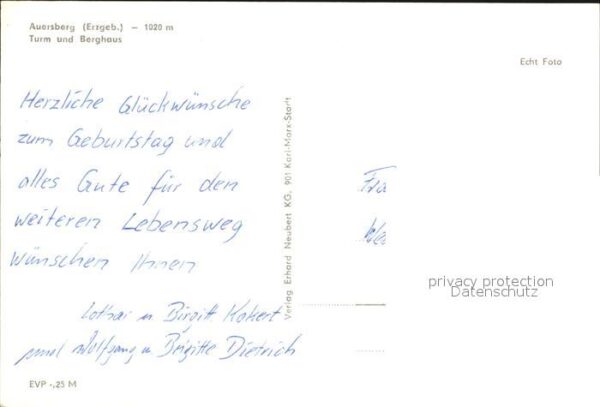 Auersberg (Erzgeb.) – 1020 m
Turm und Berghaus
Echt Foto
Herzliche Glückwünsche
zum Geburtstag und
alles Gute für den
weiteren Lebensweg
wünschen Ihnen
Lothar u Birgitt
Wolfgang u Brigitte Dietrich
Verlag Erhard Neubert KG, 901 Karl-Marx-Stadt
Fra
privacy protection
Datenschutz
EVP -,25 M